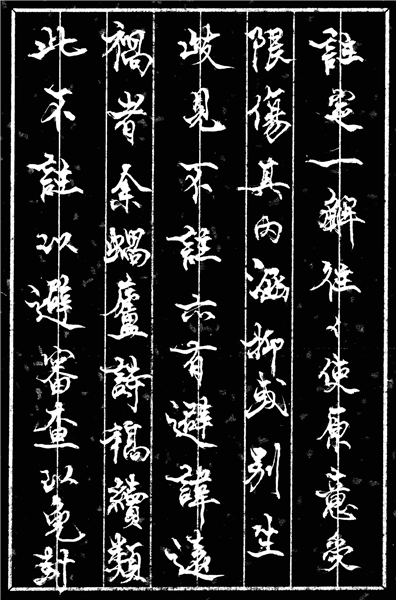 註定一解往〻使原意受
限傷其内涵抑或别生
歧見不註亦有避諱遠
禍者余蝸廬詩稿續類
此不註以避審查以免封